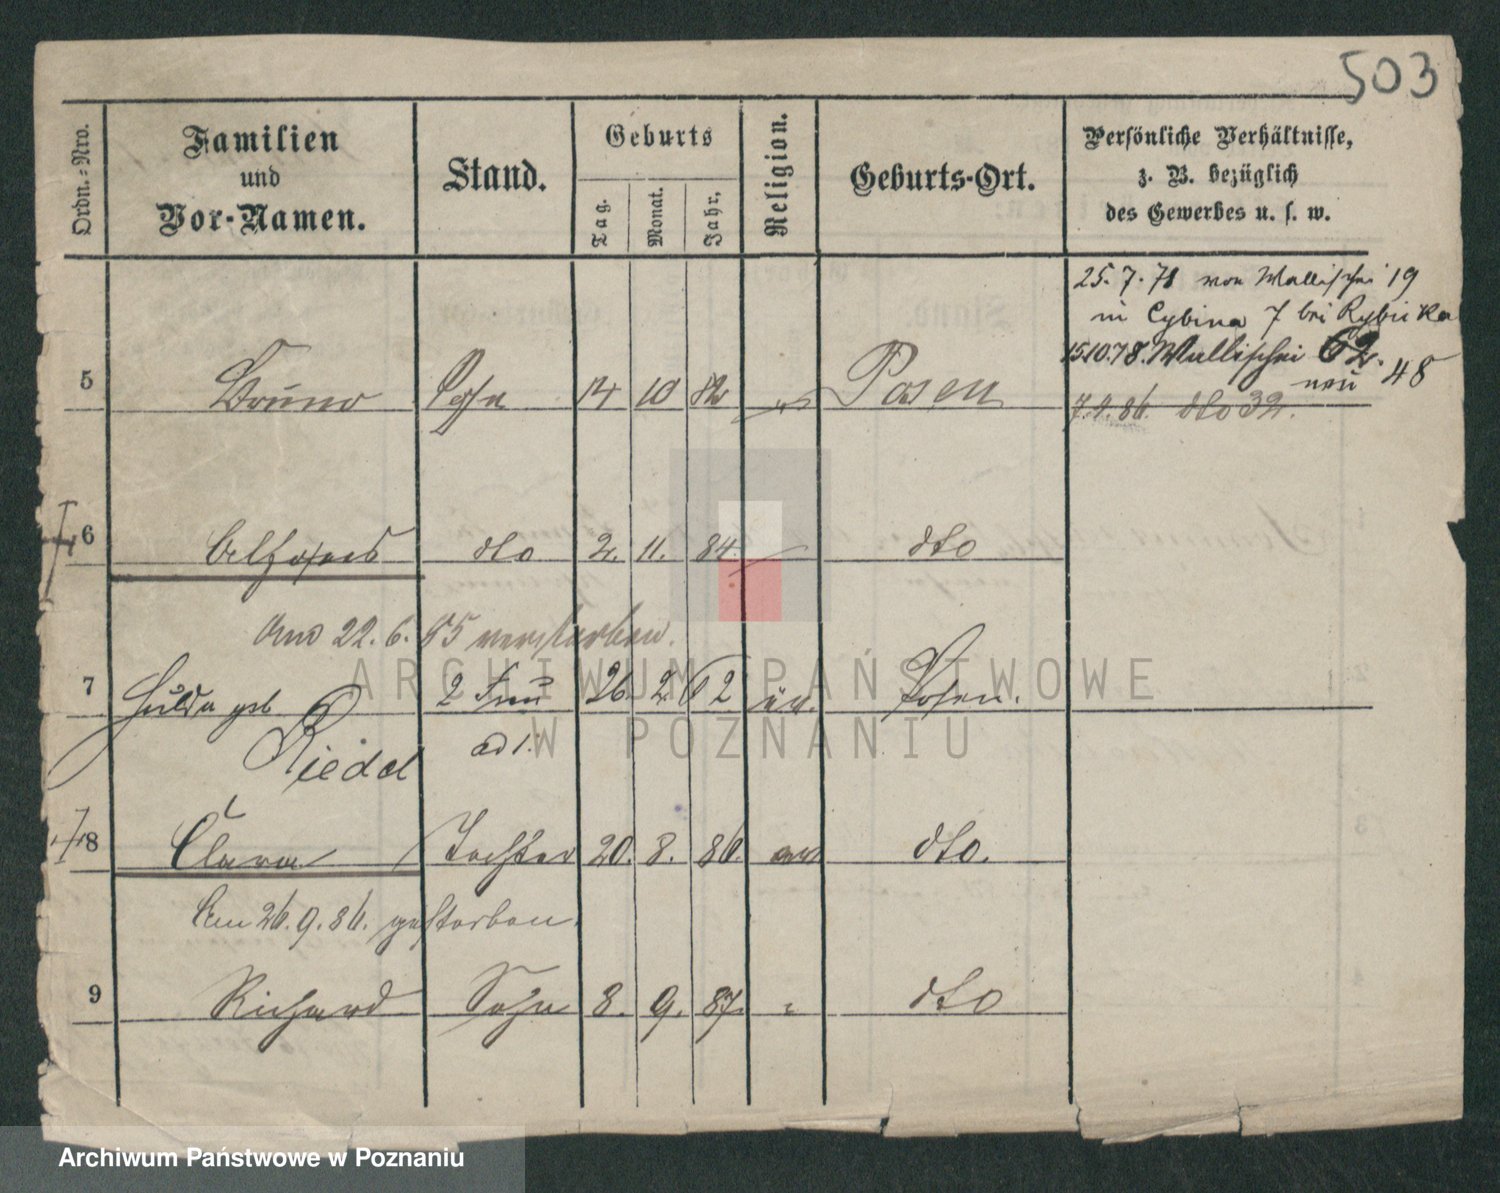 503
Ordn.-Nro.
Familien
und
Vor-Namen.
Stand.
Geburts
Tag.
Monat.
Jahr.
Religion.
Geburts-Ort.
Persönliche Verhältnisse,
z. B. bezüglich
des Gewerbes u. s. w.
25. 7. 78 von Wallischei 19
in Cybina 7 bei Rybicka
15.10.78. Wallischei 62.
neu 48
5 Bruno Sohn 14 10 82 Posen
7. 9. 86. dto 32.
6 dto 2. 11. 84. dto
Am 22. 6. 85 verstorben.
7 Hulda geb 2 Frau 26. 2. 62 ev. Posen.
Riedel ad 1.
8 Clara Tochter 20. 8. 86. ev dto.
Am 26. 9. 86. gestorben.
9 Richard Sohn 8. 9. 87. " dto
ARCHIWUM PAŃSTWOWE
W POZNANIU
Archiwum Państwowe w Poznaniu